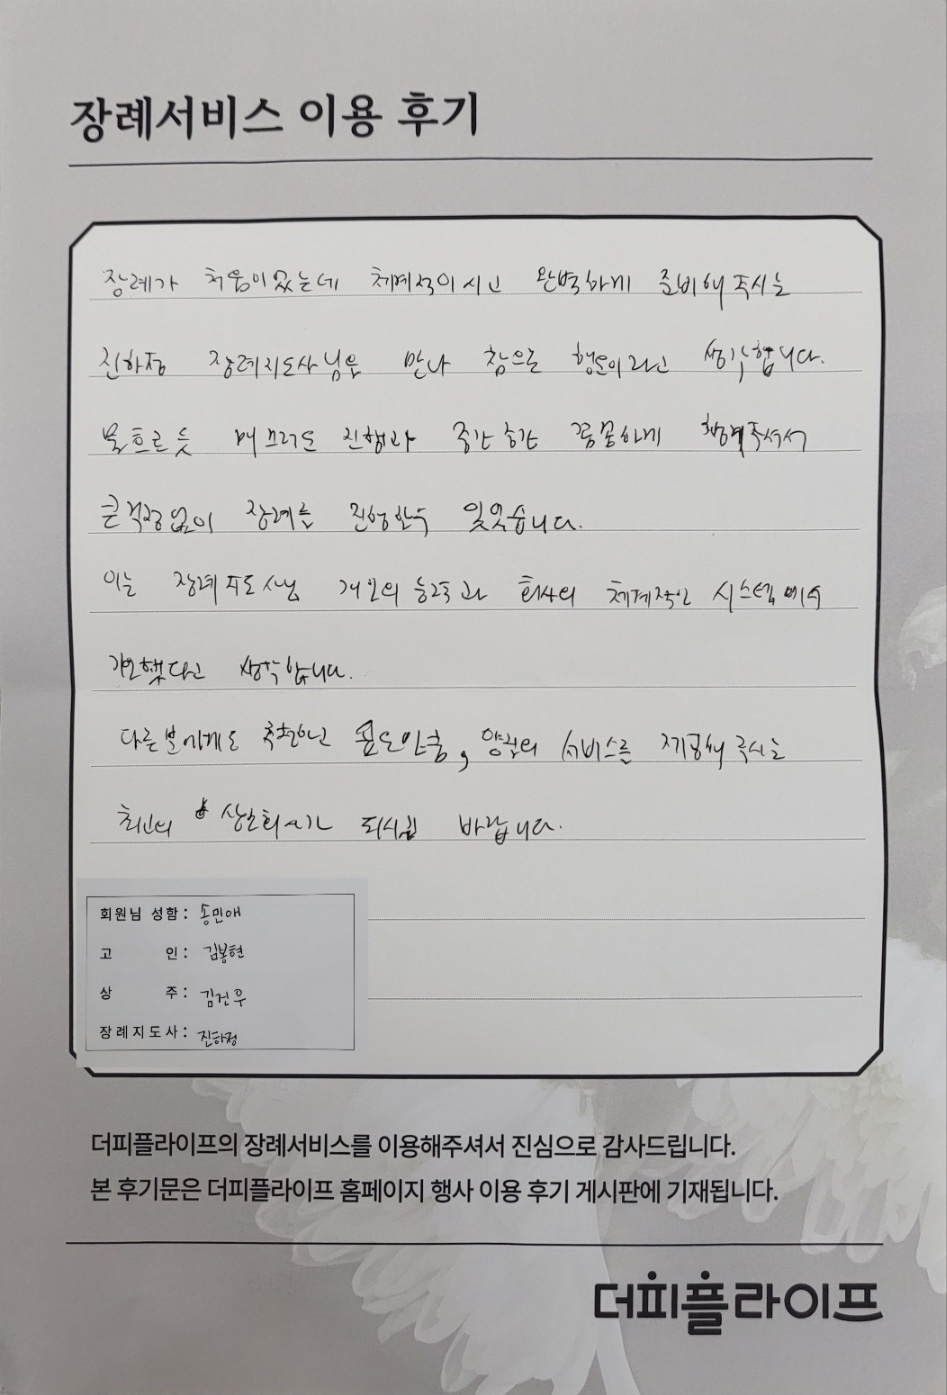 장례서비스 이용 후기
장례가 처음이었는데 체계적이시고 완벽하게 준비해주시는
진하정 장례지도사님을 만나 참으로 행운이라고 생각합니다.
물흐르듯 매끄러운 진행과 중간중간 꼼꼼하게 챙겨주셔서
큰걱정없이 장례를 진행할수 있었습니다.
이는 장례지도사님 개인의 능력과 회사의 체계적인 시스템에서
기인했다고 생각합니다.
다른분에게도 추천하고 앞으로도, 양질의 서비스를 제공해주시는
최고의 상조회사가 되시길 바랍니다.
회원님 성함: 송민애
고 인: 김봉현
상 주: 김건우
장례지도사: 진하정
더피플라이프의 장례서비스를 이용해주셔서 진심으로 감사드립니다.
본 후기문은 더피플라이프 홈페이지 행사 이용 후기 게시판에 기재됩니다.
더피플라이프